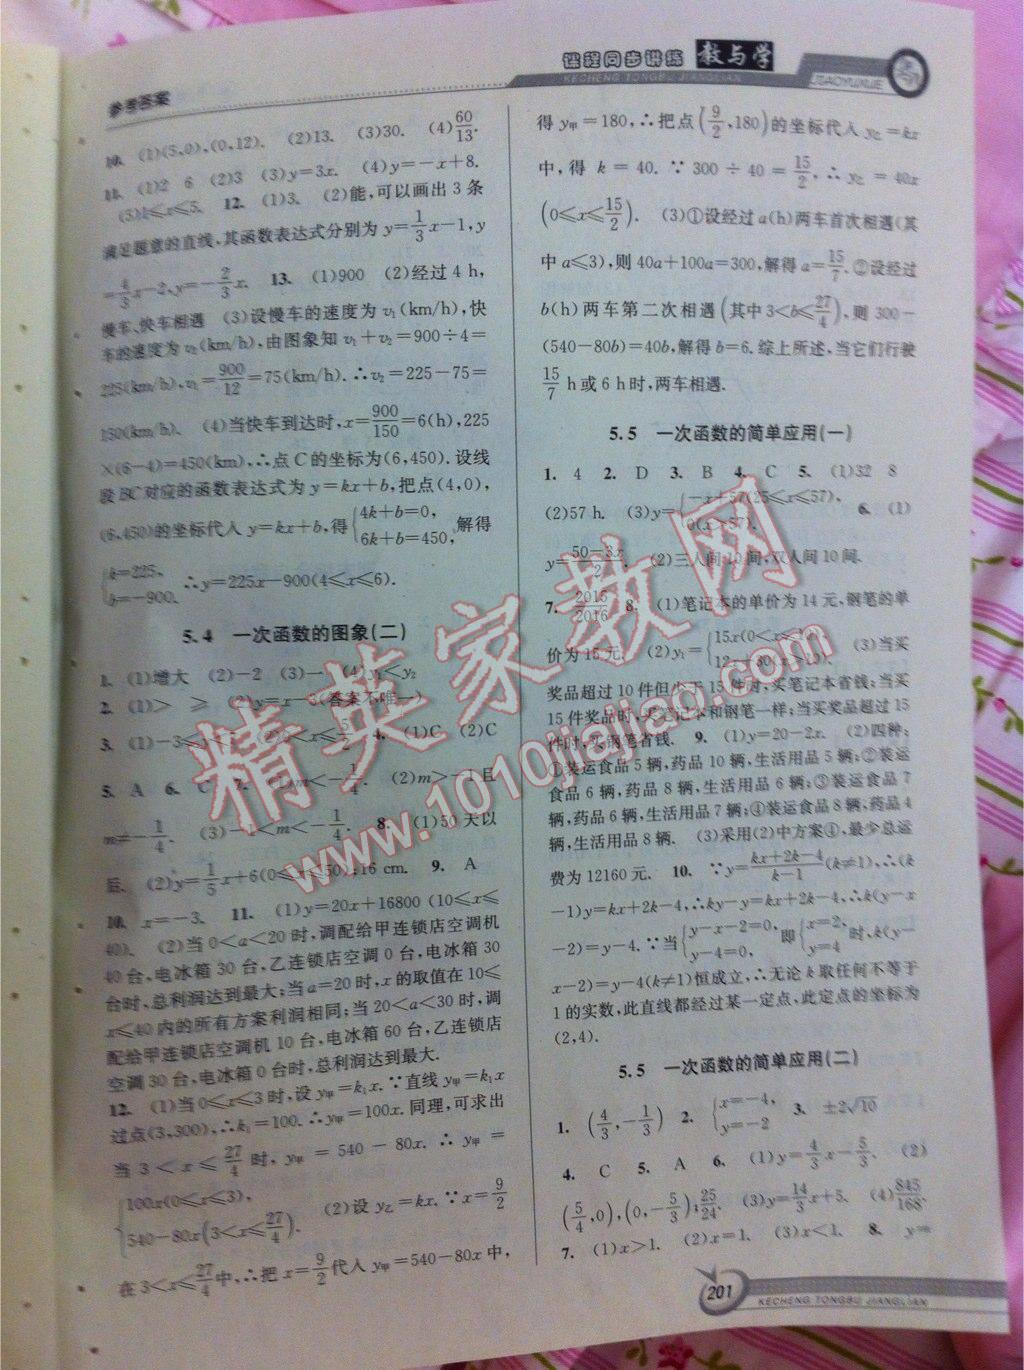 课程同步讲练 教与学
KECHENG TONGBU JIANGLIAN
JIAOYUXUE
参考答案
10. (1)(5,0),(0,12). (2)13. (3)30. (4)60/13.
11. (1)2 6 (2)3 (3)y=3x. (4)y=-x+8.
(5)1≤x≤5. 12. (1)3. (2)能,可以画出3条
满足题意的直线,其函数表达式分别为y=1/3x-1,y
=4/3x-2,y=-2/3x. 13. (1)900 (2)经过4 h,
慢车、快车相遇 (3)设慢车的速度为v₁(km/h),快
车的速度为v₂(km/h),由图象知v₁+v₂=900÷4=
225(km/h),v₁=900/12=75(km/h).∴v₂=225-75=
150(km/h). (4)当快车到达时,x=900/150=6(h),225
×(6-4)=450(km),∴点C的坐标为(6,450).设线
段BC对应的函数表达式为y=kx+b,把点(4,0),
(6,450)的坐标代入y=kx+b,得{4k+b=0, 6k+b=450,解得
{k=225, b=-900. ∴y=225x-900(4≤x≤6).
5.4 一次函数的图象(二)
1. (1)增大 (2)-2 (3)- (4)y₁<y₂
2. (1)> ≥ (2)y=x-3(答案不唯一)
3. 4. (1)C (2)C
5. A 6. C 7. (1)m<-1/4. (2)m>-1且
m≠-1/4. (3)-1<m<-1/4. 8. (1)50天以
后. (2)y=1/5x+6(0≤x≤50);16 cm. 9. A
10. x=-3. 11. (1)y=20x+16800 (10≤x≤
40). (2)当0<a<20时,调配给甲连锁店空调机
40台,电冰箱30台,乙连锁店空调0台,电冰箱30
台时,总利润达到最大;当a=20时,x的取值在10≤
x≤40内的所有方案利润相同;当20<a<30时,调
配给甲连锁店空调机10台,电冰箱60台,乙连锁店
空调30台,电冰箱0台时,总利润达到最大.
12. (1)当0≤x≤3时,设y甲=k₁x.∵直线y甲=k₁x
过点(3,300),∴k₁=100.∴y甲=100x.同理,可求出
当3<x≤27/4时,y甲=540-80x.∴y甲=
{100x(0≤x≤3), 540-80x(3<x≤27/4). (2)设y乙=kx.∵x=9/2
在3<x≤27/4中,∴把x=9/2代入y甲=540-80x中,
得y甲=180,∴把点(9/2,180)的坐标代入y乙=kx
中,得k=40.∵300÷40=15/2,∴y乙=40x
(0≤x≤15/2). (3)①设经过a(h)两车首次相遇(其
中a≤3),则40a+100a=300,解得a=15/7.②设经过
b(h)两车第二次相遇(其中3<b≤27/4),则300-
(540-80b)=40b,解得b=6.综上所述,当它们行驶
15/7 h或6 h时,两车相遇.
5.5 一次函数的简单应用(一)
1. 4 2. D 3. B 4. C 5. (1)32 8
(2)57 h. (3)y={-x+57(25≤x≤57), 0(x>57). 6. (1)
y=50-3x/2. (2)三人间10间,双人间10间.
7. 2015/2016 8. (1)笔记本的单价为14元,钢笔的单
价为15元. (2)y₁={15x(0<x≤10), 12x+30(x>10). (3)当买
奖品超过10件但少于15件时,买笔记本省钱;当买
15件奖品时,买笔记本和钢笔一样;当买奖品超过15
件时,买钢笔省钱. 9. (1)y=20-2x. (2)四种:
①装运食品5辆,药品10辆,生活用品5辆;②装运
食品6辆,药品8辆,生活用品6辆;③装运食品7
辆,药品6辆,生活用品7辆;④装运食品8辆,药品4
辆,生活用品8辆. (3)采用(2)中方案④,最少总运
费为12160元. 10. ∵y=kx+2k-4/k-1(k≠1),∴(k
-1)y=kx+2k-4,∴ky-y=kx+2k-4,∴k(y-x
-2)=y-4.∵当{y-x-2=0, y-4=0,即{x=2, y=4时,k(y-
x-2)=y-4(k≠1)恒成立,∴无论k取任何不等于
1的实数,此直线都经过某一定点,此定点的坐标为
(2,4).
5.5 一次函数的简单应用(二)
1. (4/3,-1/3) 2. {x=-4, y=-2 3. ±2√10
4. C 5. A 6. (1)y=4/3x-5/3. (2)
(5/4,0),(0,-5/3);25/24. (3)y=14/3x+5. (4)845/168.
7. (1)x>1. (2)x=1. (3)x<1. 8. y=
201
KECHENG TONGBU JIANGLIAN
精英家教网
www.1010jiajiao.com